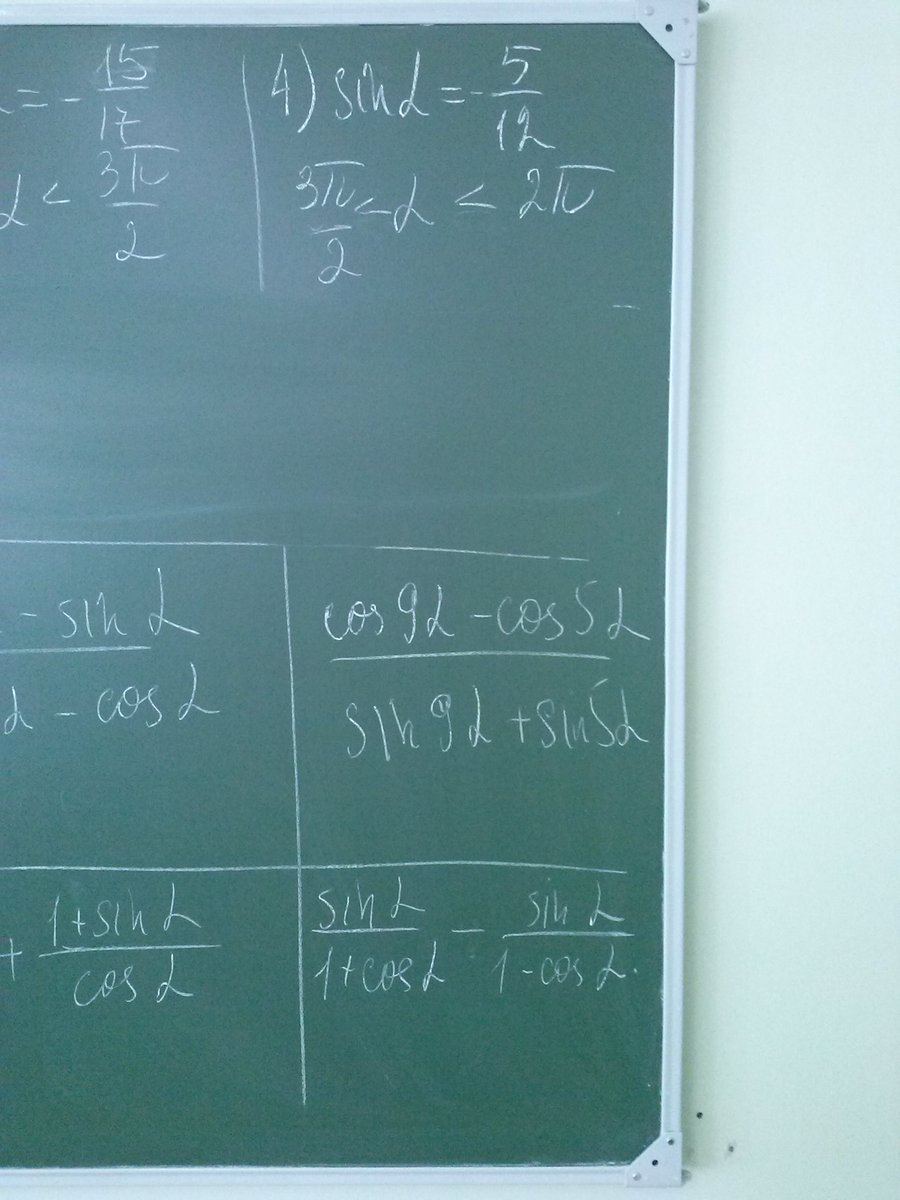 = -15/17
α < 3π/2
4) sin α = -5/12
3π/2 < α < 2π
- sin α
α - cos α
cos 9α - cos 5α
sin 9α + sin 5α
+ (1 + sin α)/cos α
sin α/(1 + cos α) - sin α/(1 - cos α).